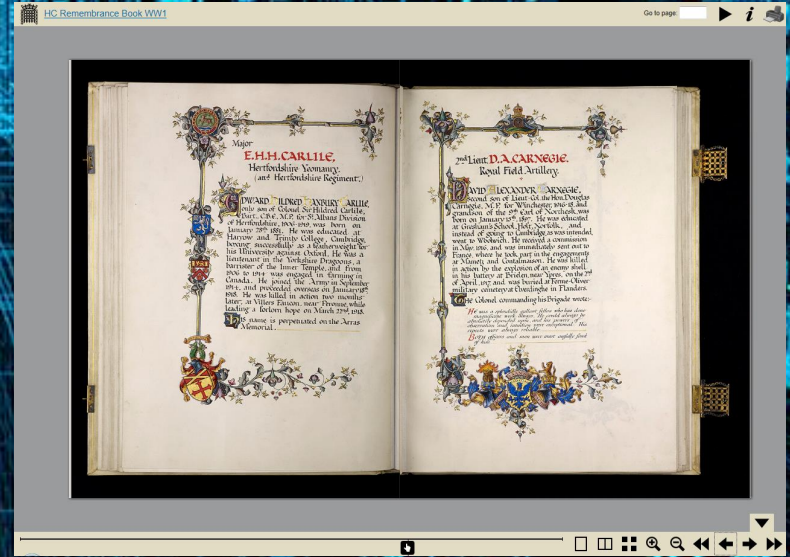 HC Remembrance Book WW1
Go to page:
Major
E.H.H. CARLILE,
Hertfordshire Yeomanry.
(and Hertfordshire Regiment.)
EDWARD HILDRED HANBURY CARLILE,
only son of Colonel Sir Hildred Carlile,
Bart., C.B.E., M.P. for St. Albans Division
of Hertfordshire, 1906-1919, was born on
January 28th 1881. He was educated at
Harrow and Trinity College, Cambridge,
boxing successfully as a featherweight for
his University against Oxford. He was a
lieutenant in the Yorkshire Dragoons, a
barrister of the Inner Temple, and from
1906 to 1914 was engaged in farming in
Canada. He joined the Army in September
1914, and proceeded overseas on January
1918. He was killed in action two months
later, at Villers Faucon, near Peronne, while
leading a forlorn hope on March 22nd, 1918.
His name is perpetuated on the Arras
Memorial.
2nd Lieut. D.A. CARNEGIE.
Royal Field Artillery.
DAVID ALEXANDER CARNEGIE,
second son of Lieut-Col. the Hon. Douglas
Carnegie, M.P. for Winchester, 1916-18, and
grandson of the 9th Earl of Northesk, was
born on January 1897. He was educated
at Gresham's School, Holt, Norfolk, and
instead of going to Cambridge, as was intended,
went to Woolwich. He received a commission
in May, 1916, and was immediately sent out to
France, where he took part in the engagements
at Mametz and Contalmaison. He was killed
in action by the explosion of an enemy shell
in his battery at Brielen, near Ypres, on the 2nd
of April, 1917, and was buried at Ferme-Olivier
military cemetery at Elverdinghe in Flanders.
The Colonel commanding his Brigade wrote:-
He was a splendidly gallant fellow who has done
magnificent work always. He could always be
absolutely depended upon and his powers of
observation and intuition were exceptional. His
reports were always reliable.
Both officers and men were most awfully fond
of him.